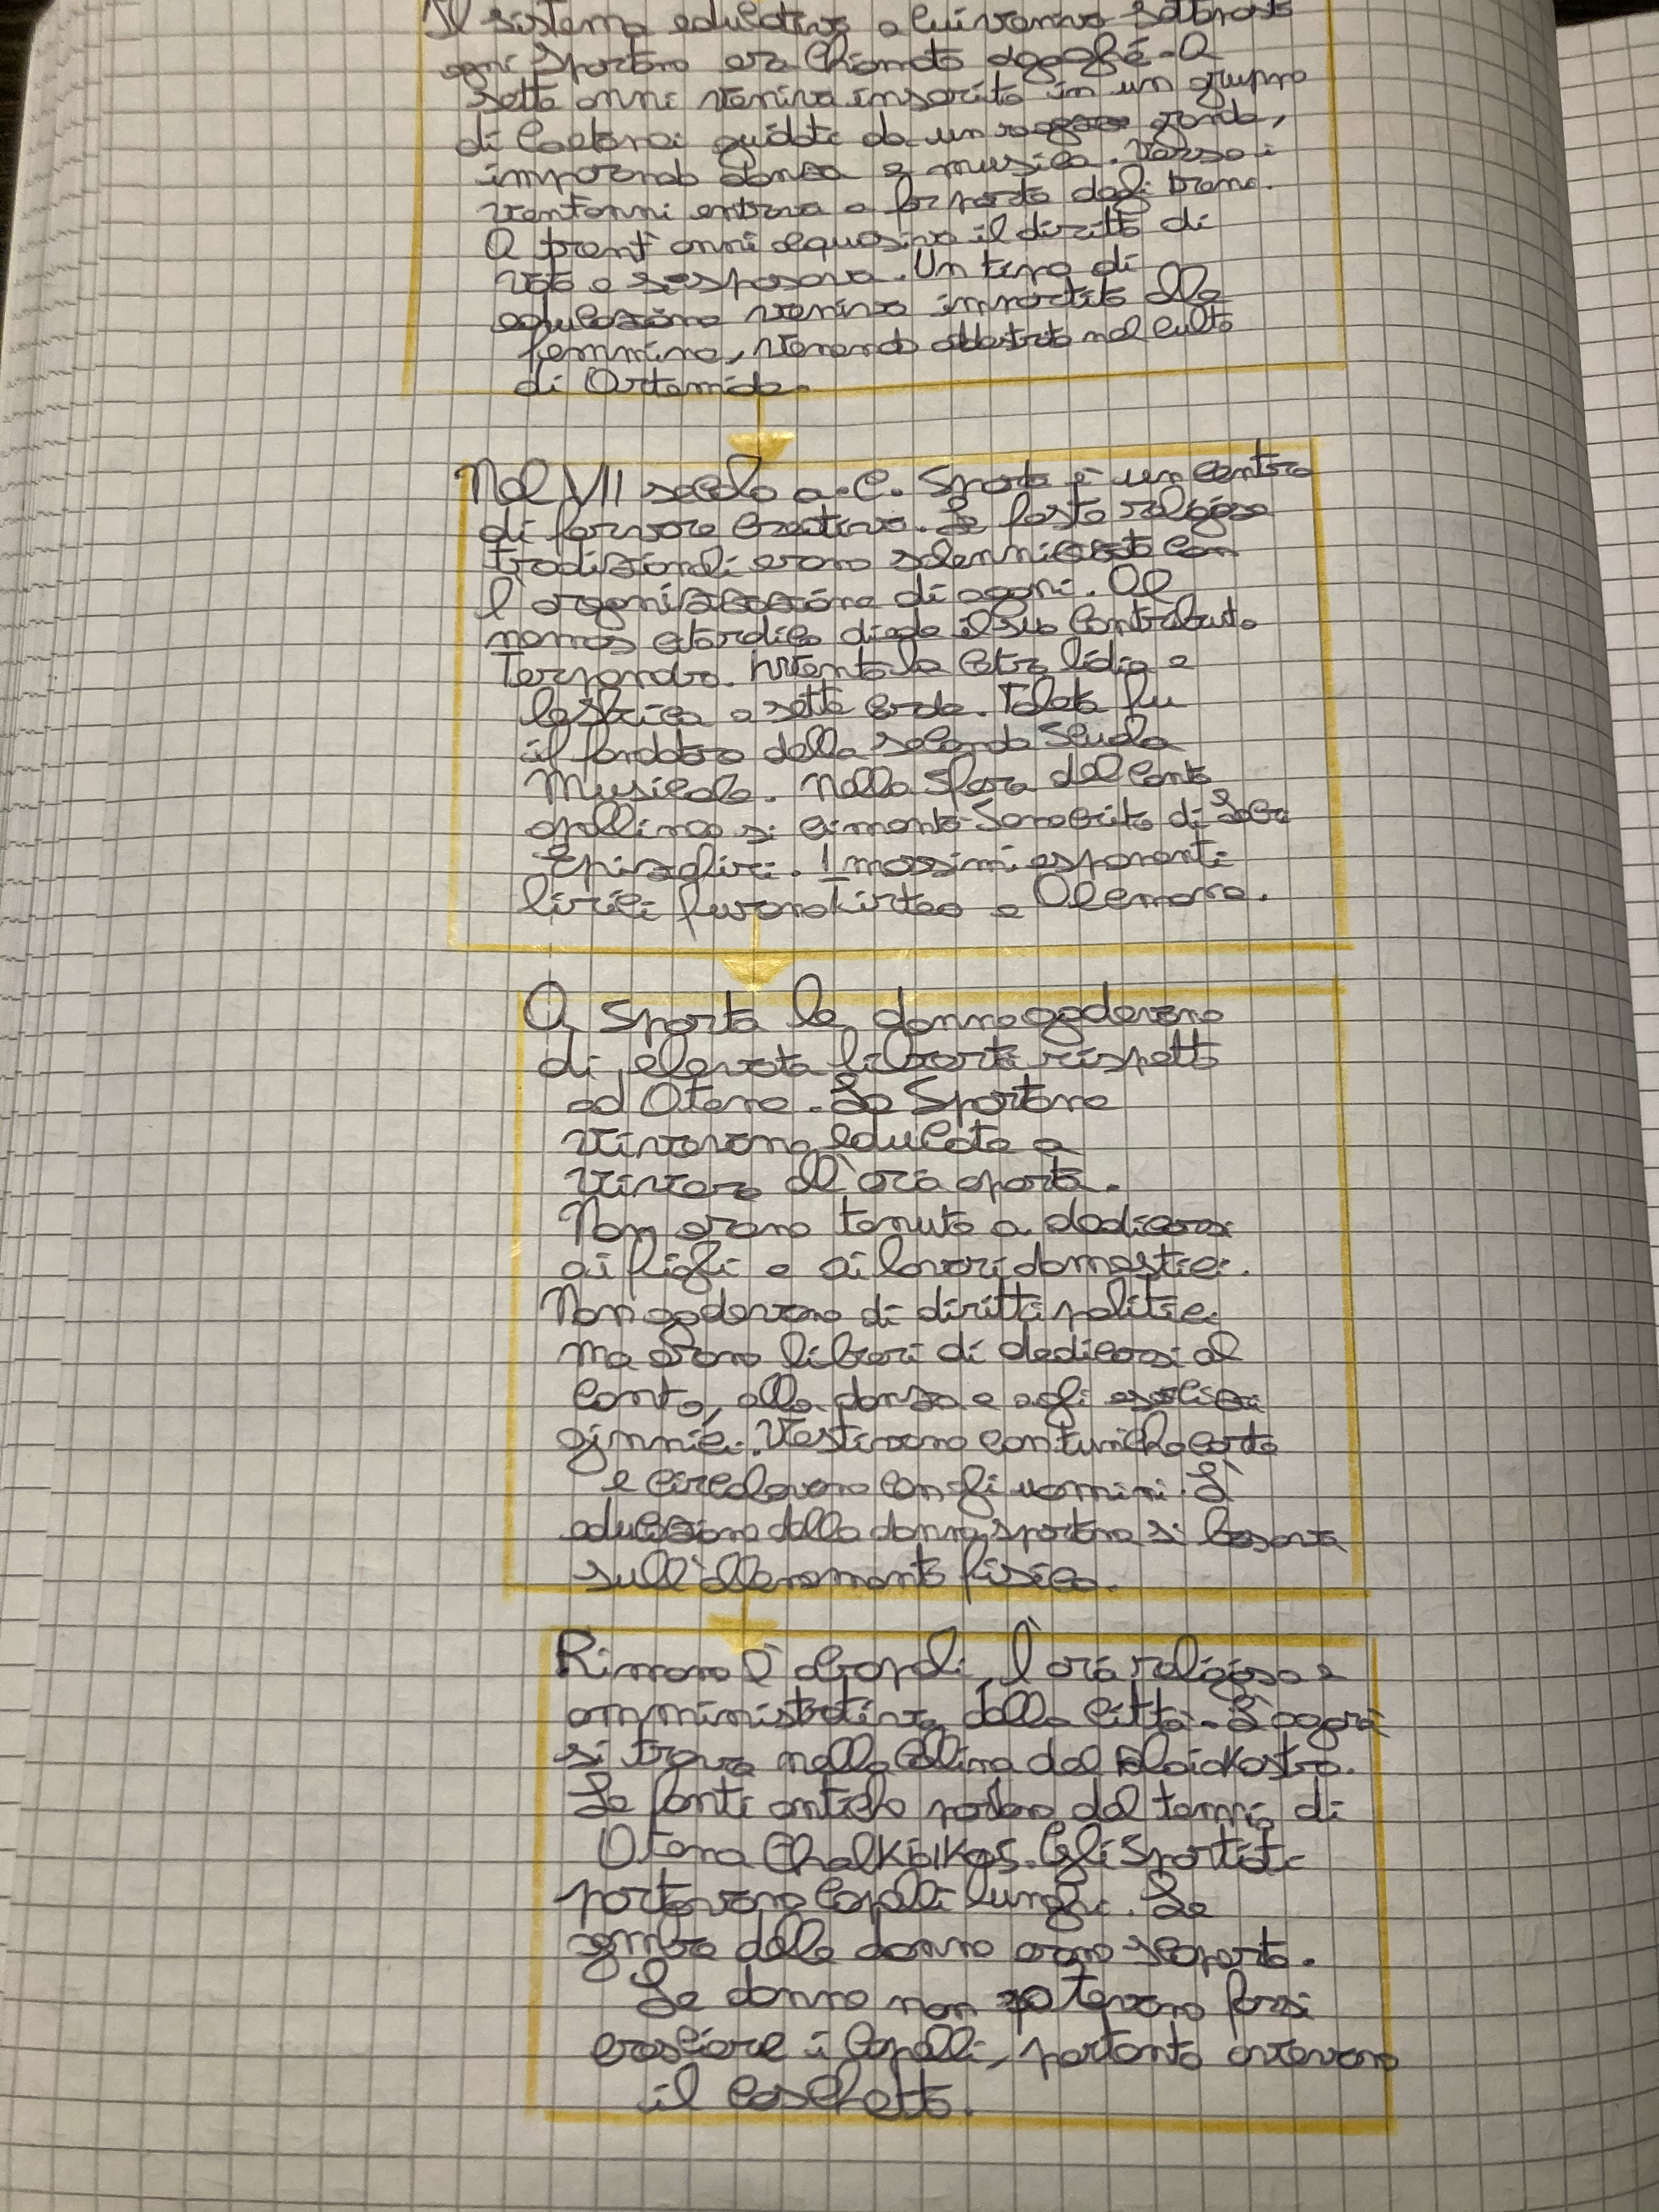 Il sistema educativo a cui veniva sottoposto
ogni spartano era chiamato agoghé. A
sette anni veniva inserito in un gruppo
di coetanei guidati da un ragazzo grande,
imparando danza e musica. Verso i
vent'anni entrava a far parte degli
A trent'anni acquisiva il diritto di
voto e si sposava. Un tipo di
educazione veniva impartito alle
femmine, venendo addestrate nel culto
di Artemide.
Nel VII secolo a.C. Sparta è un centro
di fervore creativo. Le feste religiose
tradizionali erano solennizzate con
l'organizzazione di agoni. Al
nomos citardico diede il suo contributo
Terpandro. Inventò la cetra lidia e
lesbica a sette corde. Taleta fu
il fondatore della seconda scuola
Musicale. Nella sfera del canto
apollineo si cimentò Senocrito di Locri
Epizefiri. I massimi esponenti
lirici furono Tirteo e Alcmane.
A Sparta le donne godevano
di elevata libertà rispetto
ad Atene. Le Spartane
venivano educate a
vivere all'aria aperta.
Non erano tenute a dedicarsi
ai figli e ai lavori domestici.
Non godevano di diritti politici
ma erano liberi di dedicarsi al
canto, alla danza e agli esercizi
ginnici. Vestivano con tuniche corte
e circolavano con gli uomini. L'
educazione della donna spartana si basava
sull'allenamento fisico.
Rimane l'acropoli, l'area religiosa e
amministrativa della città. L'agorà
si trova nella collina del Palaiokastro.
Le fonti antiche parlano del tempio di
Atena Chalkioikos. Gli Spartiati
portavano capelli lunghi. Le
gambe delle donne erano scoperte.
Le donne non potevano farsi
crescere i capelli, pertanto avevano
il caschetto.